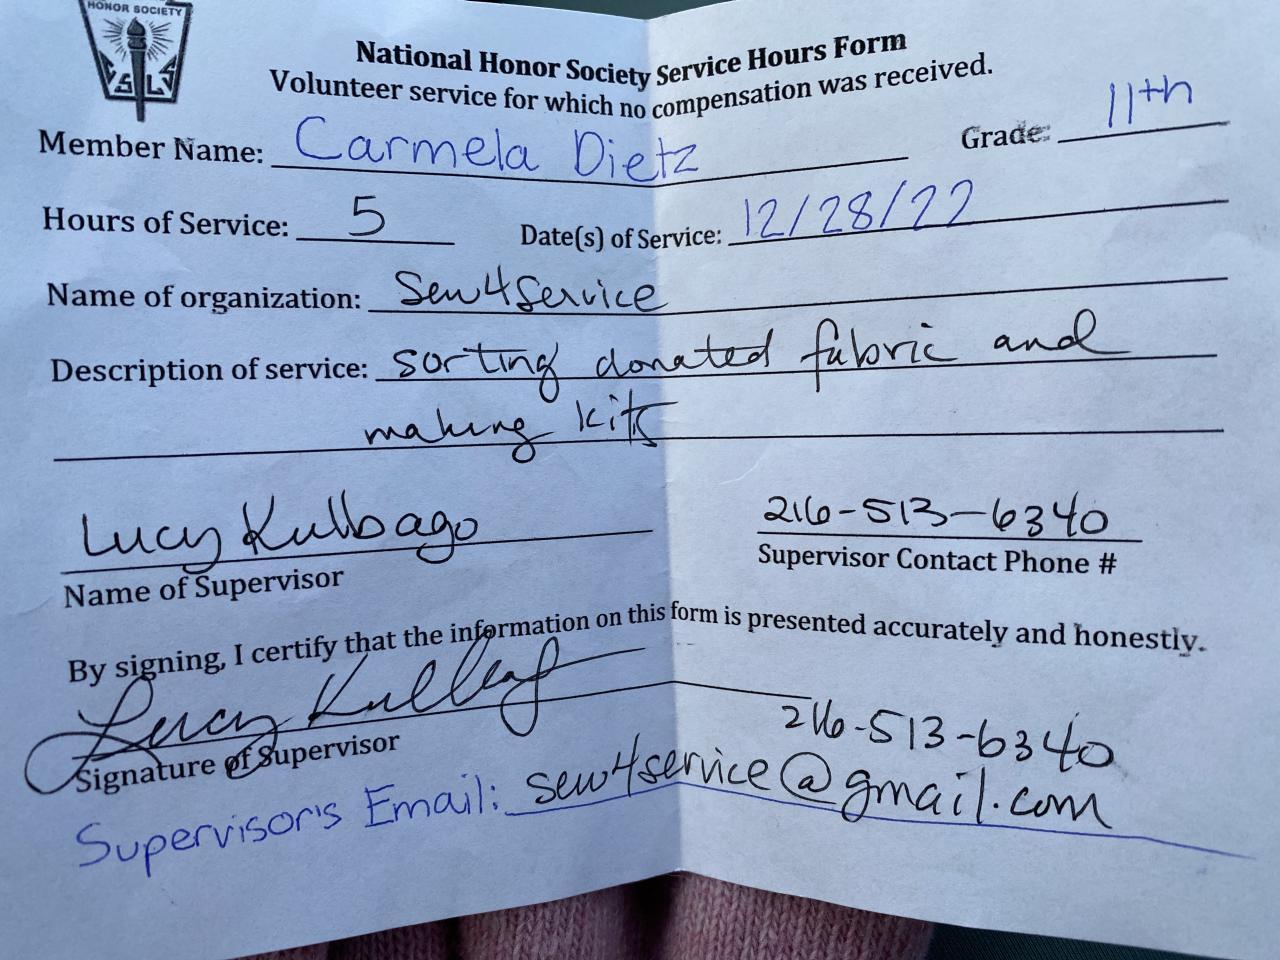 HONOR SOCIETY
NSLC
National Honor Society Service Hours Form
Volunteer service for which no compensation was received.
Member Name: Carmela Dietz Grade: 11th
Hours of Service: 5 Date(s) of Service: 12/28/22
Name of organization: Sew4Service
Description of service: sorting donated fabric and
making kits
Lucy Kulbago 216-513-6340
Name of Supervisor Supervisor Contact Phone #
By signing, I certify that the information on this form is presented accurately and honestly.
Lucy Kulbago
Signature of Supervisor 216-513-6340
Supervisor's Email: sew4service@gmail.com